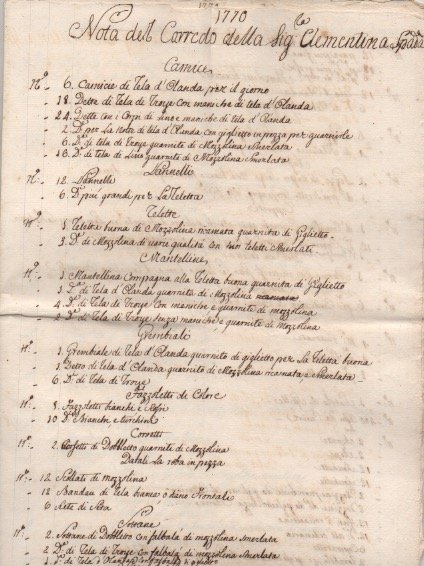 1770
1770
Nota del Corredo della Sig.ra Clementina Spada
Camice
N.o 6. Camicie di Tela d'Olanda per il giorno
18. Dette di Tela di Troye con maniche di tela d'Olanda
24. Dette con i Corpi di Lino e maniche di tela d'Olanda
2. D.e per La Notte di tela d'Olanda con giglietto in pezza per guarnirle
6. D.e di tela di Troye guarnite di Mozzolina Smerlata
18. D.e di tela di Lino guarnite di Mozzolina Smerlata
Pannelli
N.o 12. Pannelli
6. D.i più grandi per La Teletta
Telette
N.o 1. Teletta buona di Mozzolina ricamata guarnita di Giglietto
3. D.e di Mozzolina di varie qualità con suoi Smerlati
Mantelline
N.o 1. Mantellina Compagna alla Teletta buona guarnita di Giglietto
1. D.a di tela d'Olanda guarnita di Mozzolina ricamata
4. D.e di Tela di Troye con maniche e guarnite di mozzolina
2. D.e di Tela di Troye senza maniche e guarnite di Mozzolina
Grembiali
N.o 1. Grembiale di Tela d'Olanda guarnito di giglietto per La Teletta buona
1. Detto di tela d'Olanda guarnito di Mozzolina ricamata e Smerlata
6. D.i di Tela di Troye
Fazzoletti di Colore
N.o 8. Fazzoletti bianchi e
10. D.i Bianchi e turchini
Corsetti
N.o 2. Corsetti di Dobbletto guarniti di Mozzolina
Datali La roba in pezza
N.o 12 di mozzolina
12 Bandau di Tela bianco o siano Frontali
6 Rete di Seta
Sottane
N.o 2. Sottane di Dobbletto con falbalà di mozzolina smerlata
2. D.e di Tela di Troye con falbalà di mozzolina Smerlata
2. D.e di Tela d'Olanda